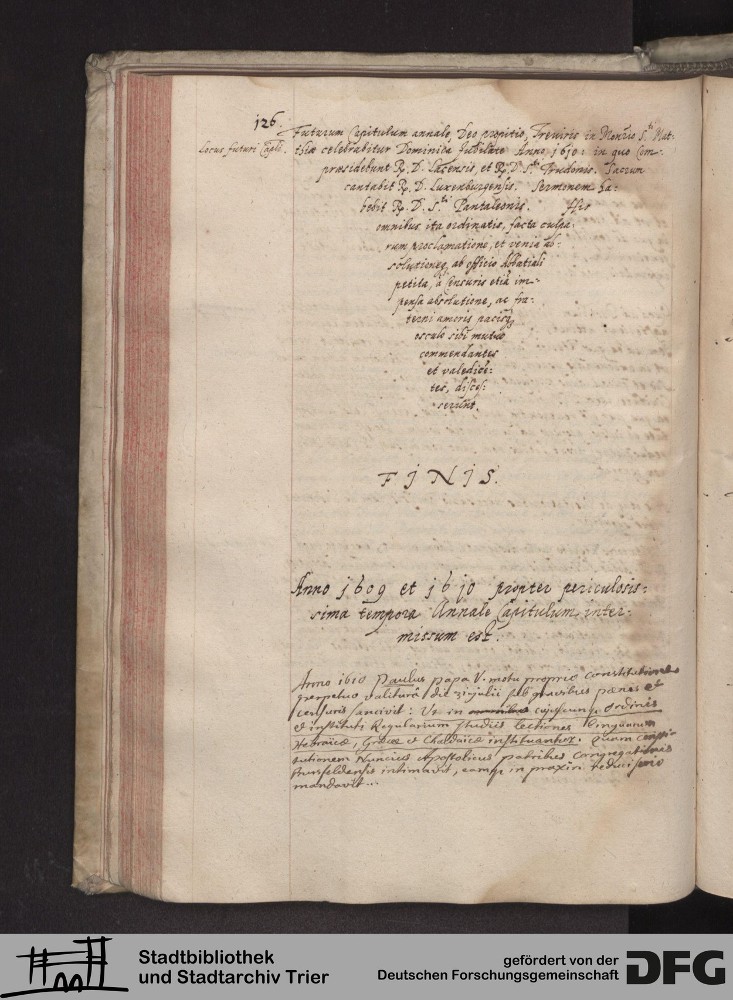 126.
Futurum Capitulum annale, Deo propitio, Treviris in Monrio S.ti Mat-
Locus futuri Capli.
thiæ celebrabitur Dominica Jubilate Anno 1610: in quo Com-
præsidebunt R. D. Lacensis, et R. D. S.ti Trudonis. Sacrum
cantabit R. D. Luxenburgensis. Sermonem ha-
bebit R. D. S.ti Pantaleonis.
omnibus ita ordinatis, facta culpa-
rum proclamatione, et venia ab-
solutioneq; ab officio Abbatiali
petita, a Censuris etiã im-
pensa absolutione, ac fra-
terni amoris pacisq;
osculo sibi mutuo
commendantes
et valedicẽ-
tes, disces-
serunt.
FINIS.
Anno 1609 et 1610 propter periculosis-
sima tempora Annale Capitulum inter-
missum est.
Anno 1610 Paulus papa V. motu proprio constitutione
perpetuo valiturâ die 31 julii sub gravibus pœnis et
censuris sancivit: Ut in cujuscunq; Ordinis
et instituti Regularium studiis lectiones Linguarum
Hebraicæ, Græcæ et Chaldaicæ instituantur. Quam consti-
tutionem Nuncius Apostolicus patribus Congregationis
Bursfeldensis intimavit, eamq; in praxin reduci serio
mandavit...
Stadtbibliothek
und Stadtarchiv Trier
gefördert von der
Deutschen Forschungsgemeinschaft
DFG